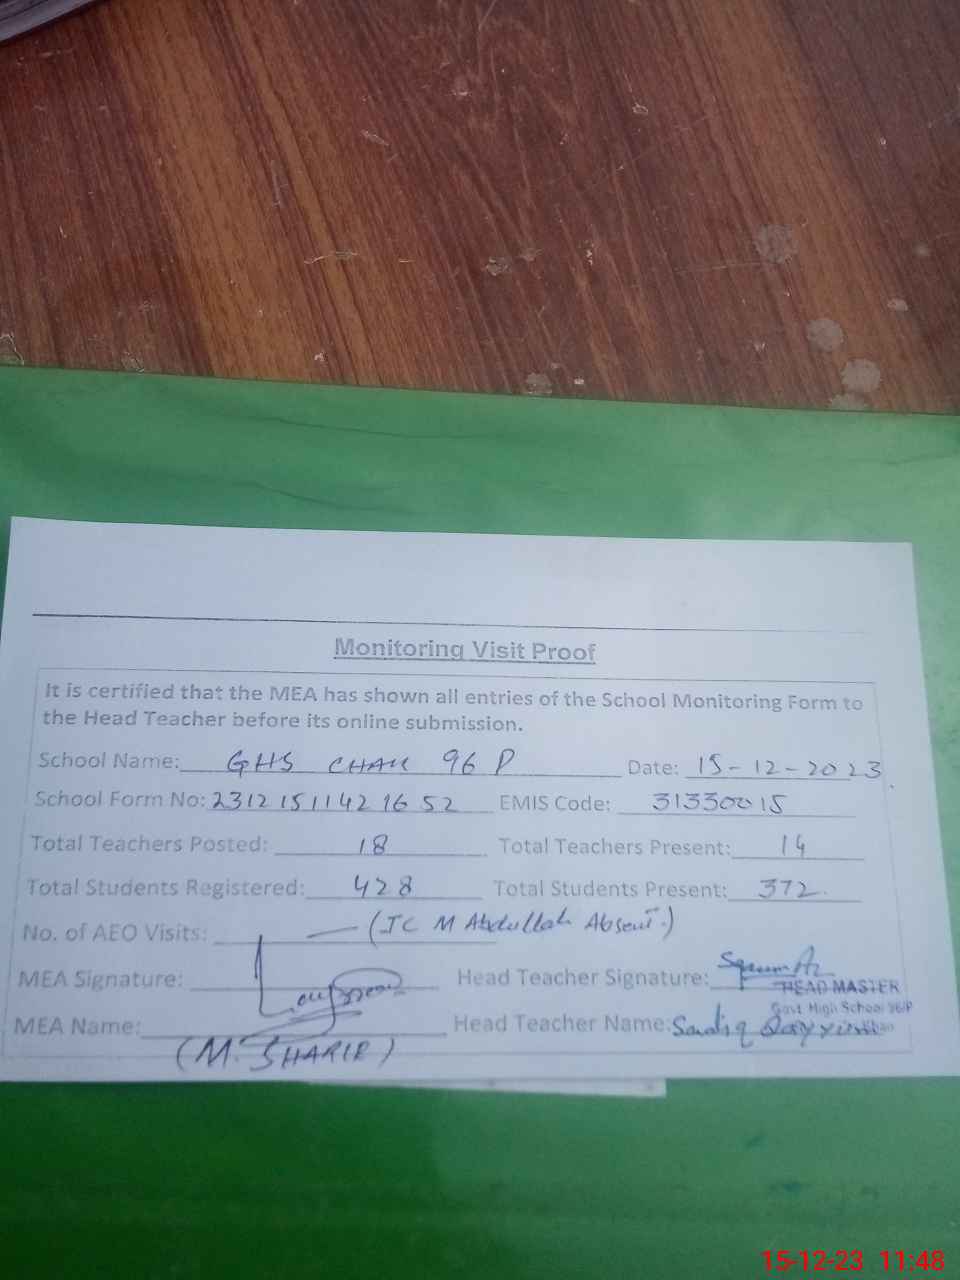 Monitoring Visit Proof
It is certified that the MEA has shown all entries of the School Monitoring Form to
the Head Teacher before its online submission.
School Name: GHS CHAK 96 P Date: 15-12-2023
School Form No: 2312 1511 42 16 52 EMIS Code: 31330015
Total Teachers Posted: 18 Total Teachers Present: 14
Total Students Registered: 428 Total Students Present: 372
No. of AEO Visits: — (JC M Abdullah Absent.)
MEA Signature: Head Teacher Signature:
HEAD MASTER
Govt High School 96/P
MEA Name: Head Teacher Name: Sadiq
(M. SHARIF)
15-12-23 11:48